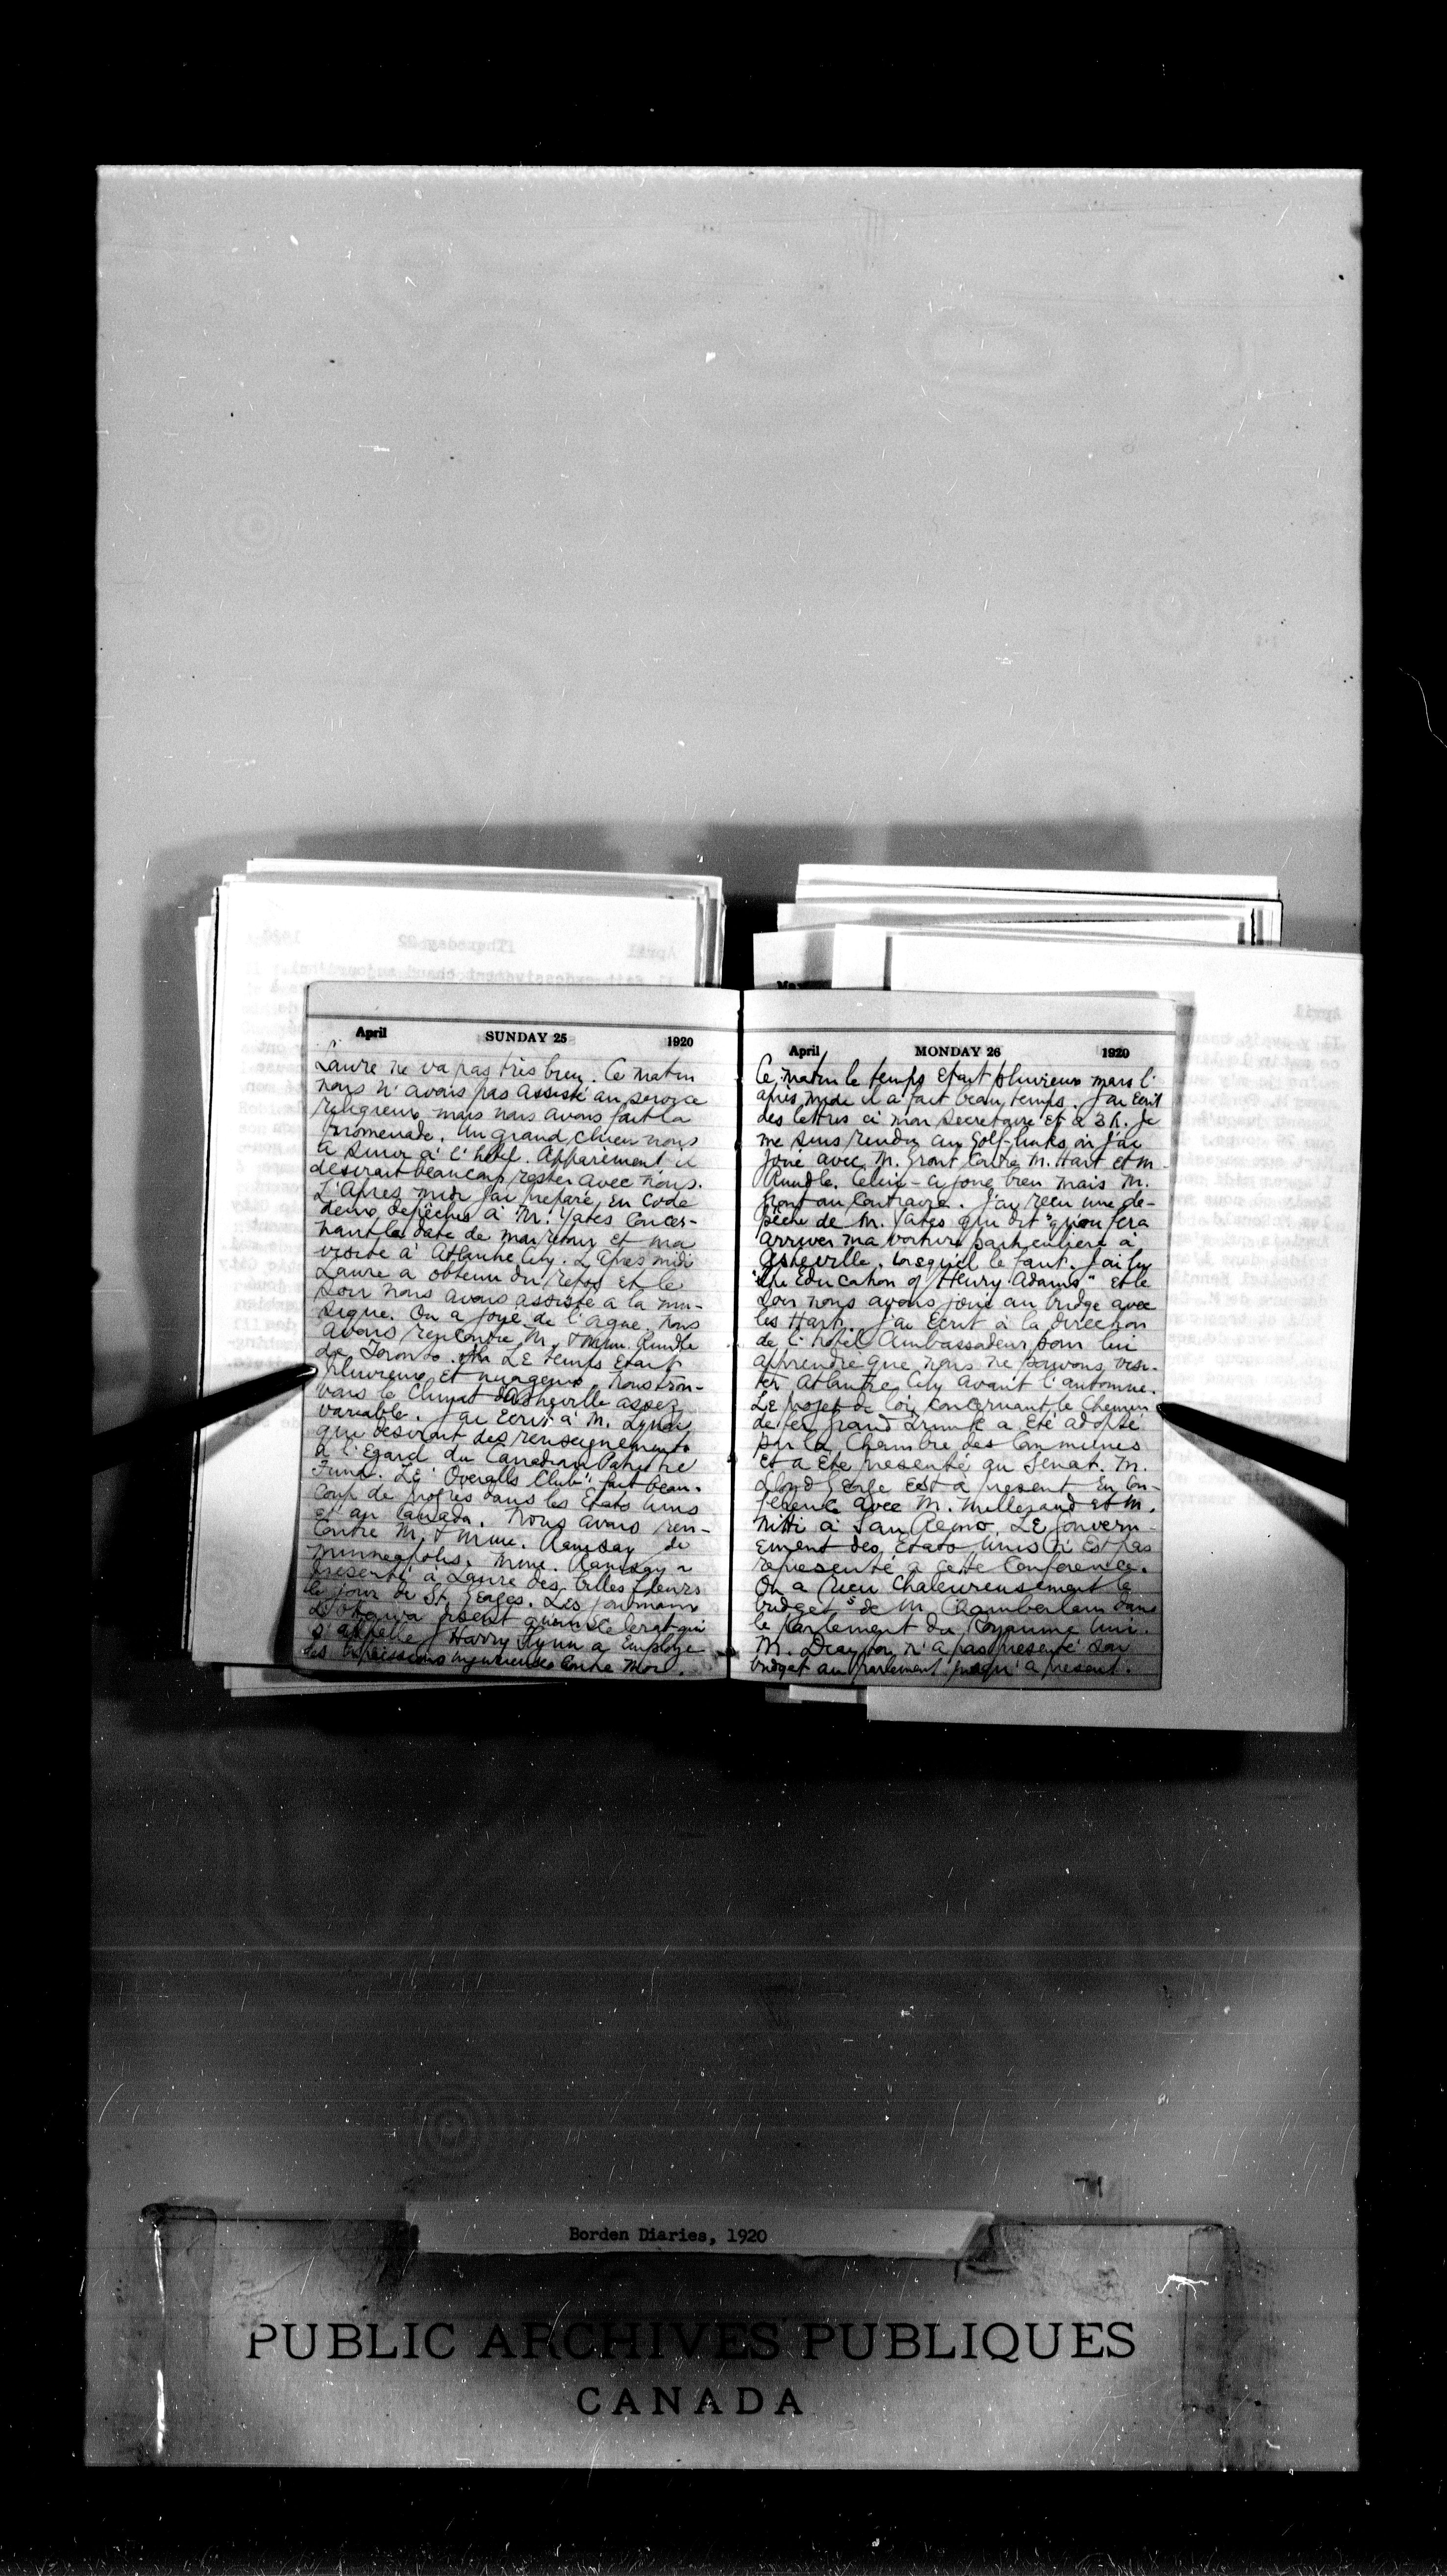 April SUNDAY 25 1920
Laure ne va pas très bien. Ce matin
nous n'avais pas assisté au service
religieux mais nous avons fait la
promenade. Un grand chien nous
a suivi à l'hôtel. Apparement il
desirait beaucoup rester avec nous.
L'Apres midi j'ai préparé en code
deux depêches à M. Yates concer-
nant la date de mon retour et ma
visite à Atlantic City. L'apres midi
Laure a obtenu du repos et le
soir nous avons assisté a la mu-
sique. On a joué de l'
avons rencontré M. & Mme. Rundle
de Toronto. Le temps etait
pluvieux et nuageux. Nous trou-
vons le climat d'Asheville assez
variable. J'ai ecrit à M.
qui desirait des renseignements
a l'Egard du Canadian Patriotic
Fund. Le "Overalls Club" fait beau-
coup de progres dans les Etats Unis
et au Canada. Nous avons ren-
contré M. & Mme. Ramsay de
Minneapolis. Mme. Ramsay a
presenté a Laure des belles fleurs
le jour de St. Georges. Les journaux
d'Ottawa disent qu'un scelerat qui
s'appelle Harry Flynn a employé
des expressions injurieuses contre moi.
April MONDAY 26 1920
Ce matin le temps etait pluvieux mais l'
après midi il a fait beau temps. J'ai ecrit
des lettres à mon secretaire et à 3 h. je
me suis rendu au Golf-links où j'ai
joué avec M. Gront contre M. Hart et M.
Rundle. Celui-ci joue bien mais M.
Gront au contraire. J'ai reçu une de-
pêche de M. Yates qui dit "qu'on fera
arriver ma voiture particuliere à
Asheville, lorsqu'il le faut. J'ai lu
"The Education of Henry Adams" et le
soir nous avons joué au bridge avec
les Hart. J'ai ecrit à la direction
de l'hôtel Ambassadeur pour lui
apprendre que nous ne pouvons visi-
ter Atlantic City avant l'automne.
Le projet de loi concernant le Chemin
de fer Grand Trunk a été adopté
par la Chambre des Communes
et a été presenté au Senat. M.
Lloyd George est à present en con-
ference avec M. Millerand et M.
Nitti à San Remo. Le gouvern-
ement des Etats Unis n'est pas
representé a cette Conference.
On a reçu chaleureusement le
budget de M. Chamberlain dans
le Parlement du Royaume Uni.
M. Drayton n'a pas presenté son
budget au parlement jusqu'a present.
Borden Diaries, 1920
PUBLIC ARCHIVES PUBLIQUES
CANADA